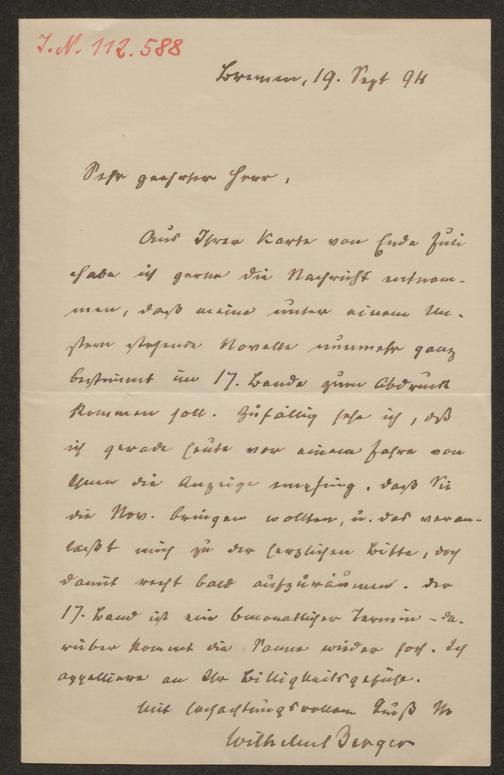 J.N. 112.588
Bremen, 19. Sept 94
Sehr geehrter Herr,
Aus Ihrer Karte von Ende Juli
habe ich gerne die Nachricht entnom-
men, daß meine unter einem Un-
stern stehende Novelle nunmehr ganz
bestimmt im 17. Bande zum Abdruck
kommen soll. Zufällig sehe ich, daß
ich gerade heute vor einem Jahre von
Ihnen die Anzeige empfing, daß Sie
die Nov. bringen wollten, u. das veran-
laßt mich zu der herzlichen Bitte, doch
damit recht bald aufzuräumen. Der
17. Band ist ein 6monatlicher Termin - da-
rüber kommt die Sonne wieder hoch. Ich
appelliere an Ihr Billigkeitsgefühl.
Mit hochachtungsvollem Gruß Ihr
Wilhelm Berger